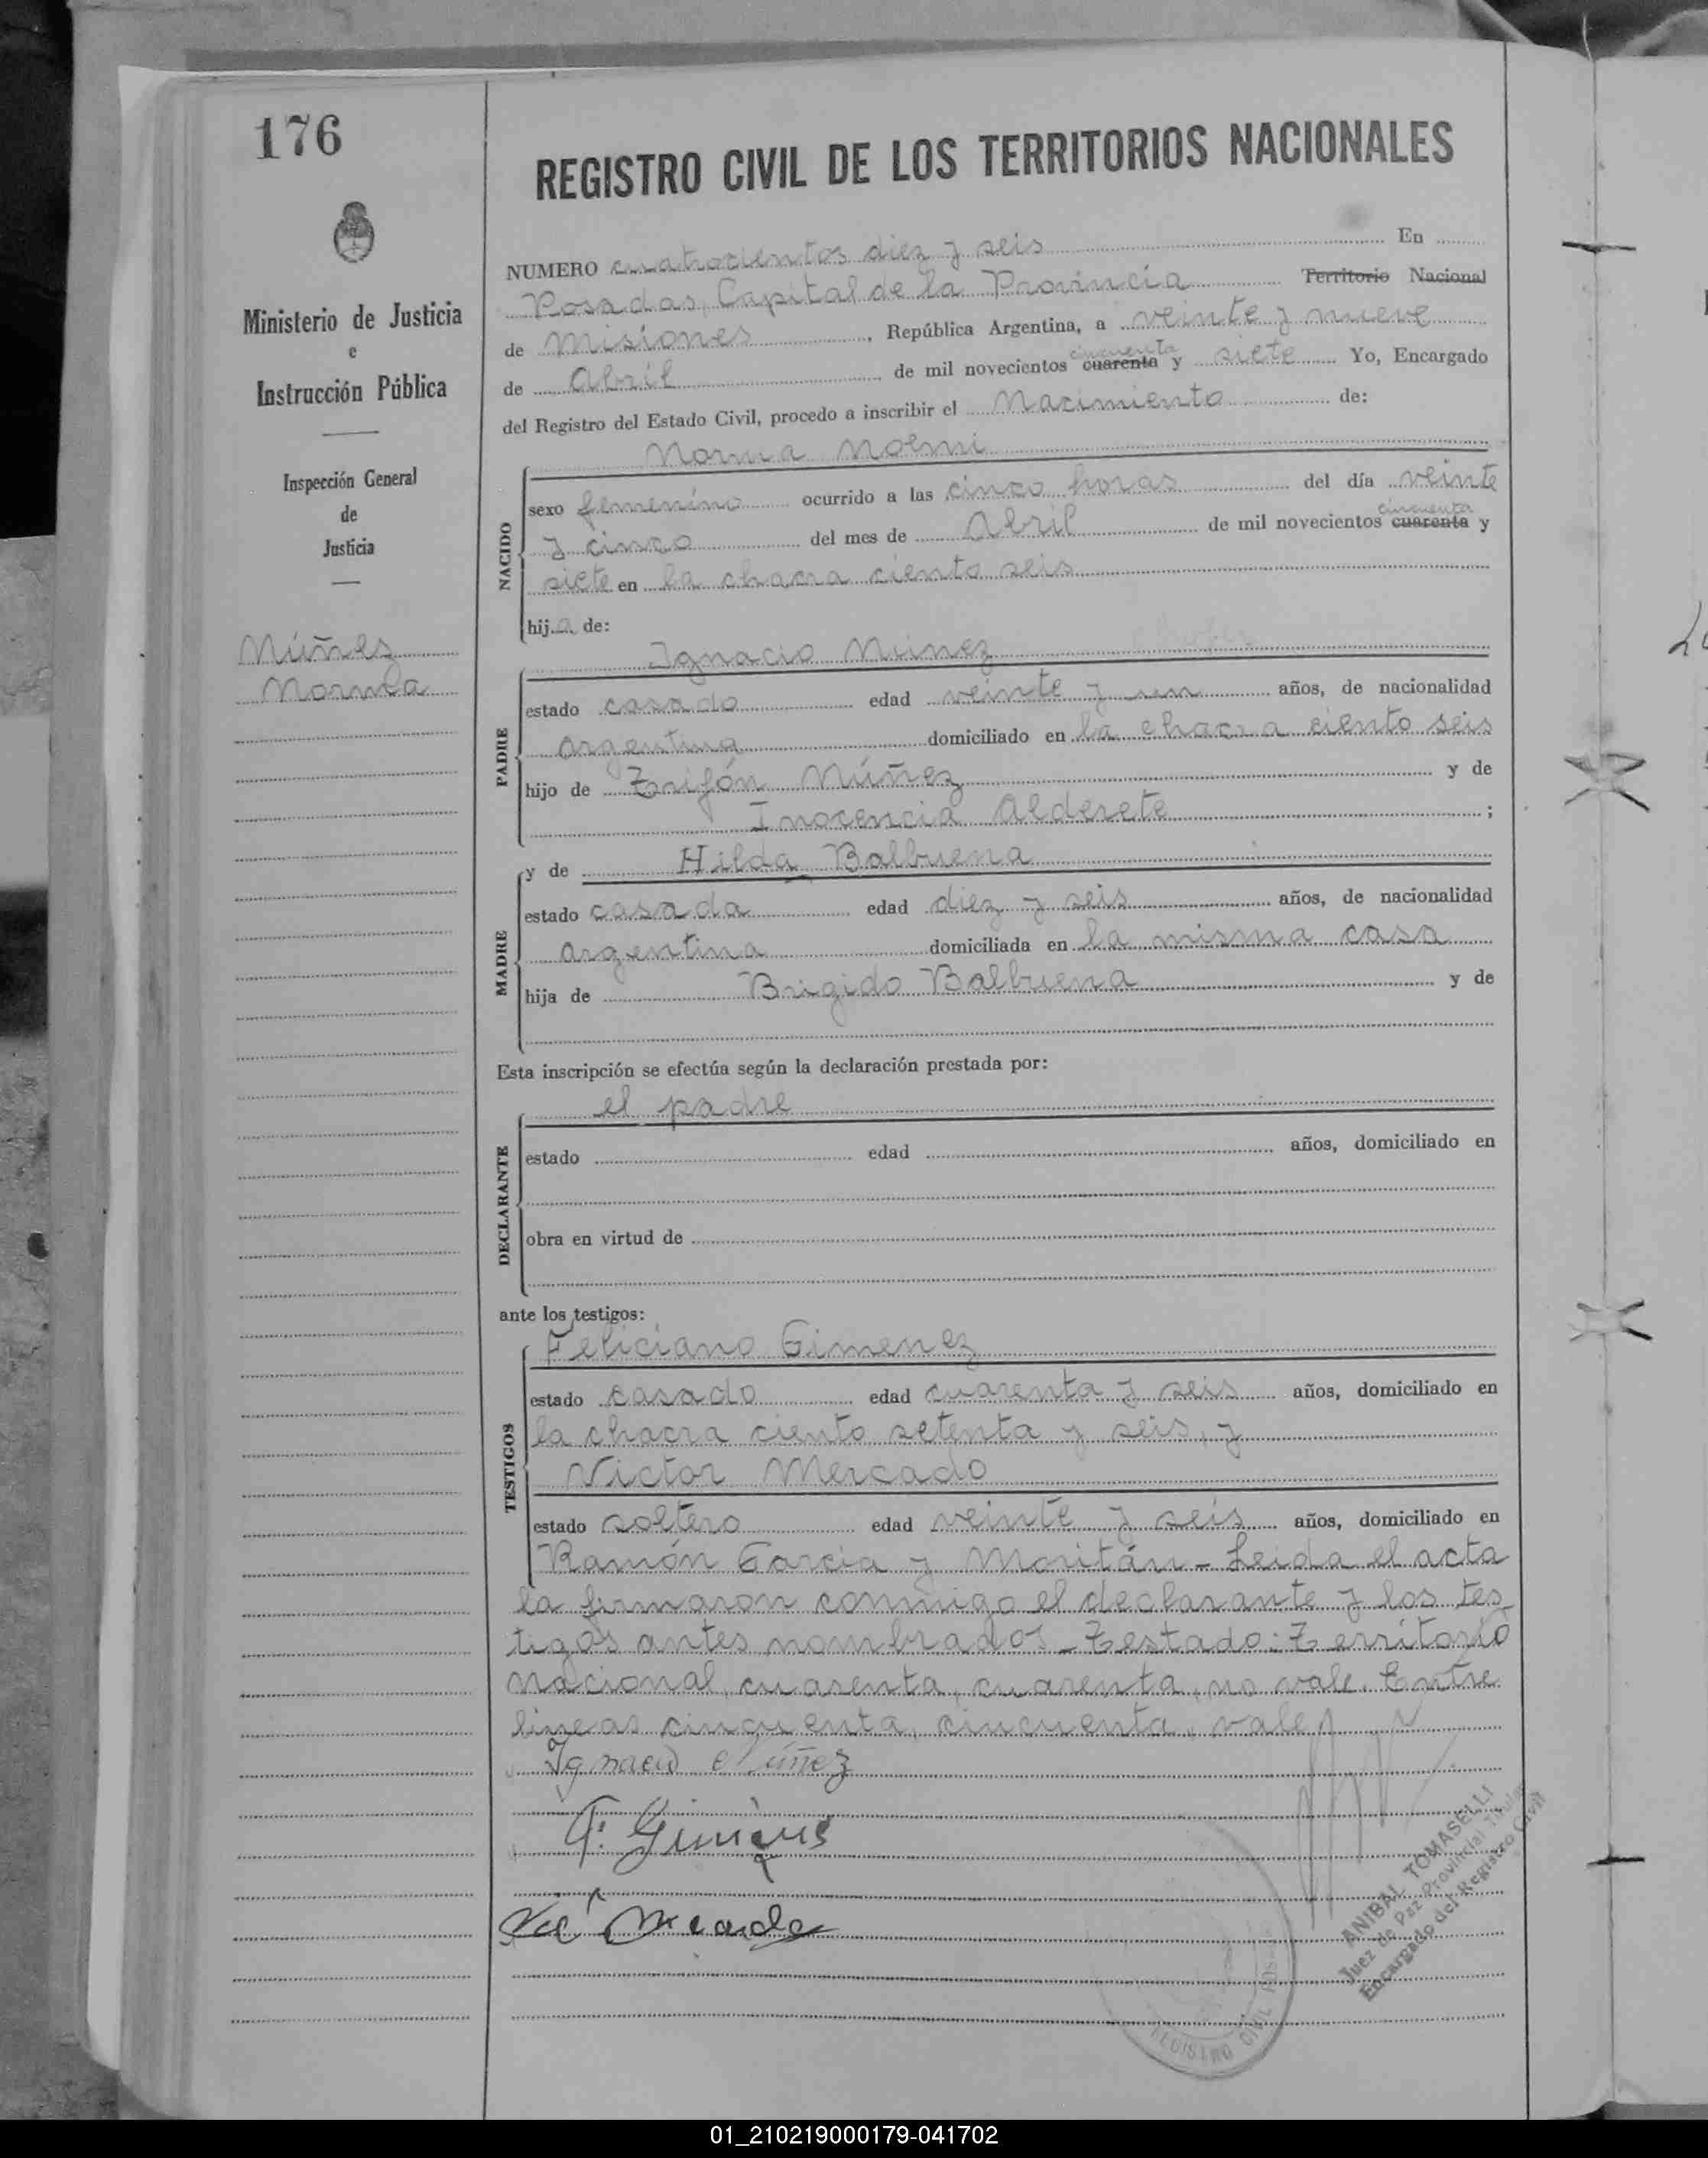 176
REGISTRO CIVIL DE LOS TERRITORIOS NACIONALES
Ministerio de Justicia
e
Instrucción Pública
Inspección General
de
Justicia
Núñez
Norma
NUMERO cuatrocientos diez y seis En
Posadas, Capital de la Provincia Territorio Nacional
de Misiones, República Argentina, a veinte y nueve
de Abril de mil novecientos cuarenta cincuenta y siete Yo, Encargado
del Registro del Estado Civil, procedo a inscribir el Nacimiento de:
Norma Noemi
NACIDO
sexo femenino ocurrido a las cinco horas del día veinte
y cinco del mes de Abril de mil novecientos cuarenta cincuenta y
siete en la chacra ciento seis
hija de:
Ignacio Núnez
PADRE
estado casado edad veinte y un años, de nacionalidad
argentina domiciliado en la chacra ciento seis
hijo de Trifón Núñez y de
Inocencia Alderete ;
MADRE
y de Hilda Balbuena
estado casada edad diez y seis años, de nacionalidad
argentina domiciliada en la misma casa
hija de Brigido Balbuena y de
Esta inscripción se efectúa según la declaración prestada por:
el padre
DECLARANTE
estado edad años, domiciliado en
obra en virtud de
ante los testigos:
Feliciano Gimenez
TESTIGOS
estado casado edad cuarenta y seis años, domiciliado en
la chacra ciento setenta y seis, y
Victor Mercado
estado soltero edad veinte y seis años, domiciliado en
Ramón Garcia y Moritán - Leida el acta
la firmaron conmigo el declarante y los tes
tigos antes nombrados - Testado: Territorio
nacional, cuarenta, cuarenta, no vale. Entre
lineas cincuenta, cincuenta, vale
Ignacio Núñez
F. Gimenez
Vic Mercado
ANIBAL TOMASELLI
Juez de Paz Provincial Titular
Encargado del Registro Civil
REGISTRO CIVIL
01_210219000179-041702